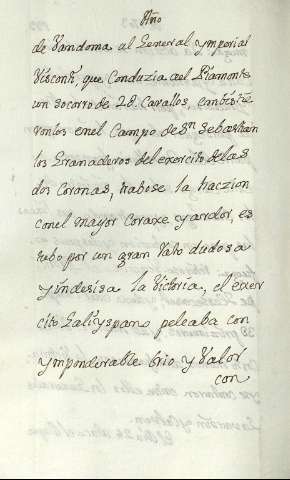 Año
de Vandoma al General ymperial
Visconti, que Conduzia ael Piamonte
un socorro de 28. Cavallos, embistie
ronlos enel Campo de Sn Sebastian
los Granaderos del exercito delas
dos Coronas, trabose la haczion
conel mayor Coraxe y ardor, es
tubo por un gran Rato dudosa
yindesisa la Victoria, el exer
cito Galiyspano peleaba con
ymponderable brio y Valor
con